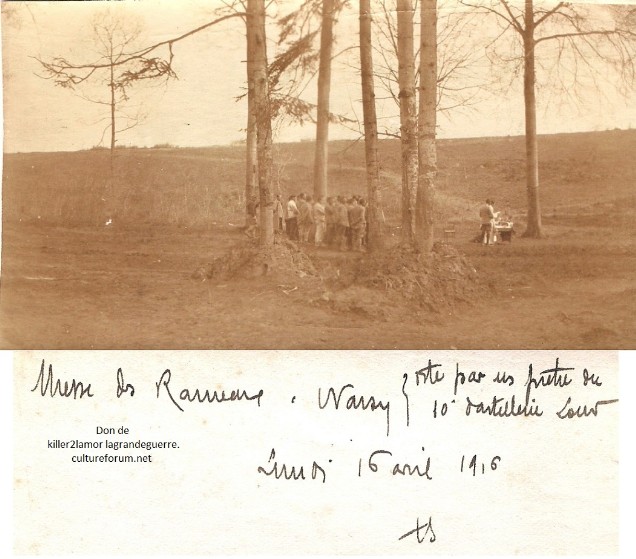 Messe des Rameaux à Warsy } dite par un prêtre du
10e d'artillerie Lour
Don de
killer2lamor lagrandeguerre.
cultureforum.net
Lundi 16 avril 1916